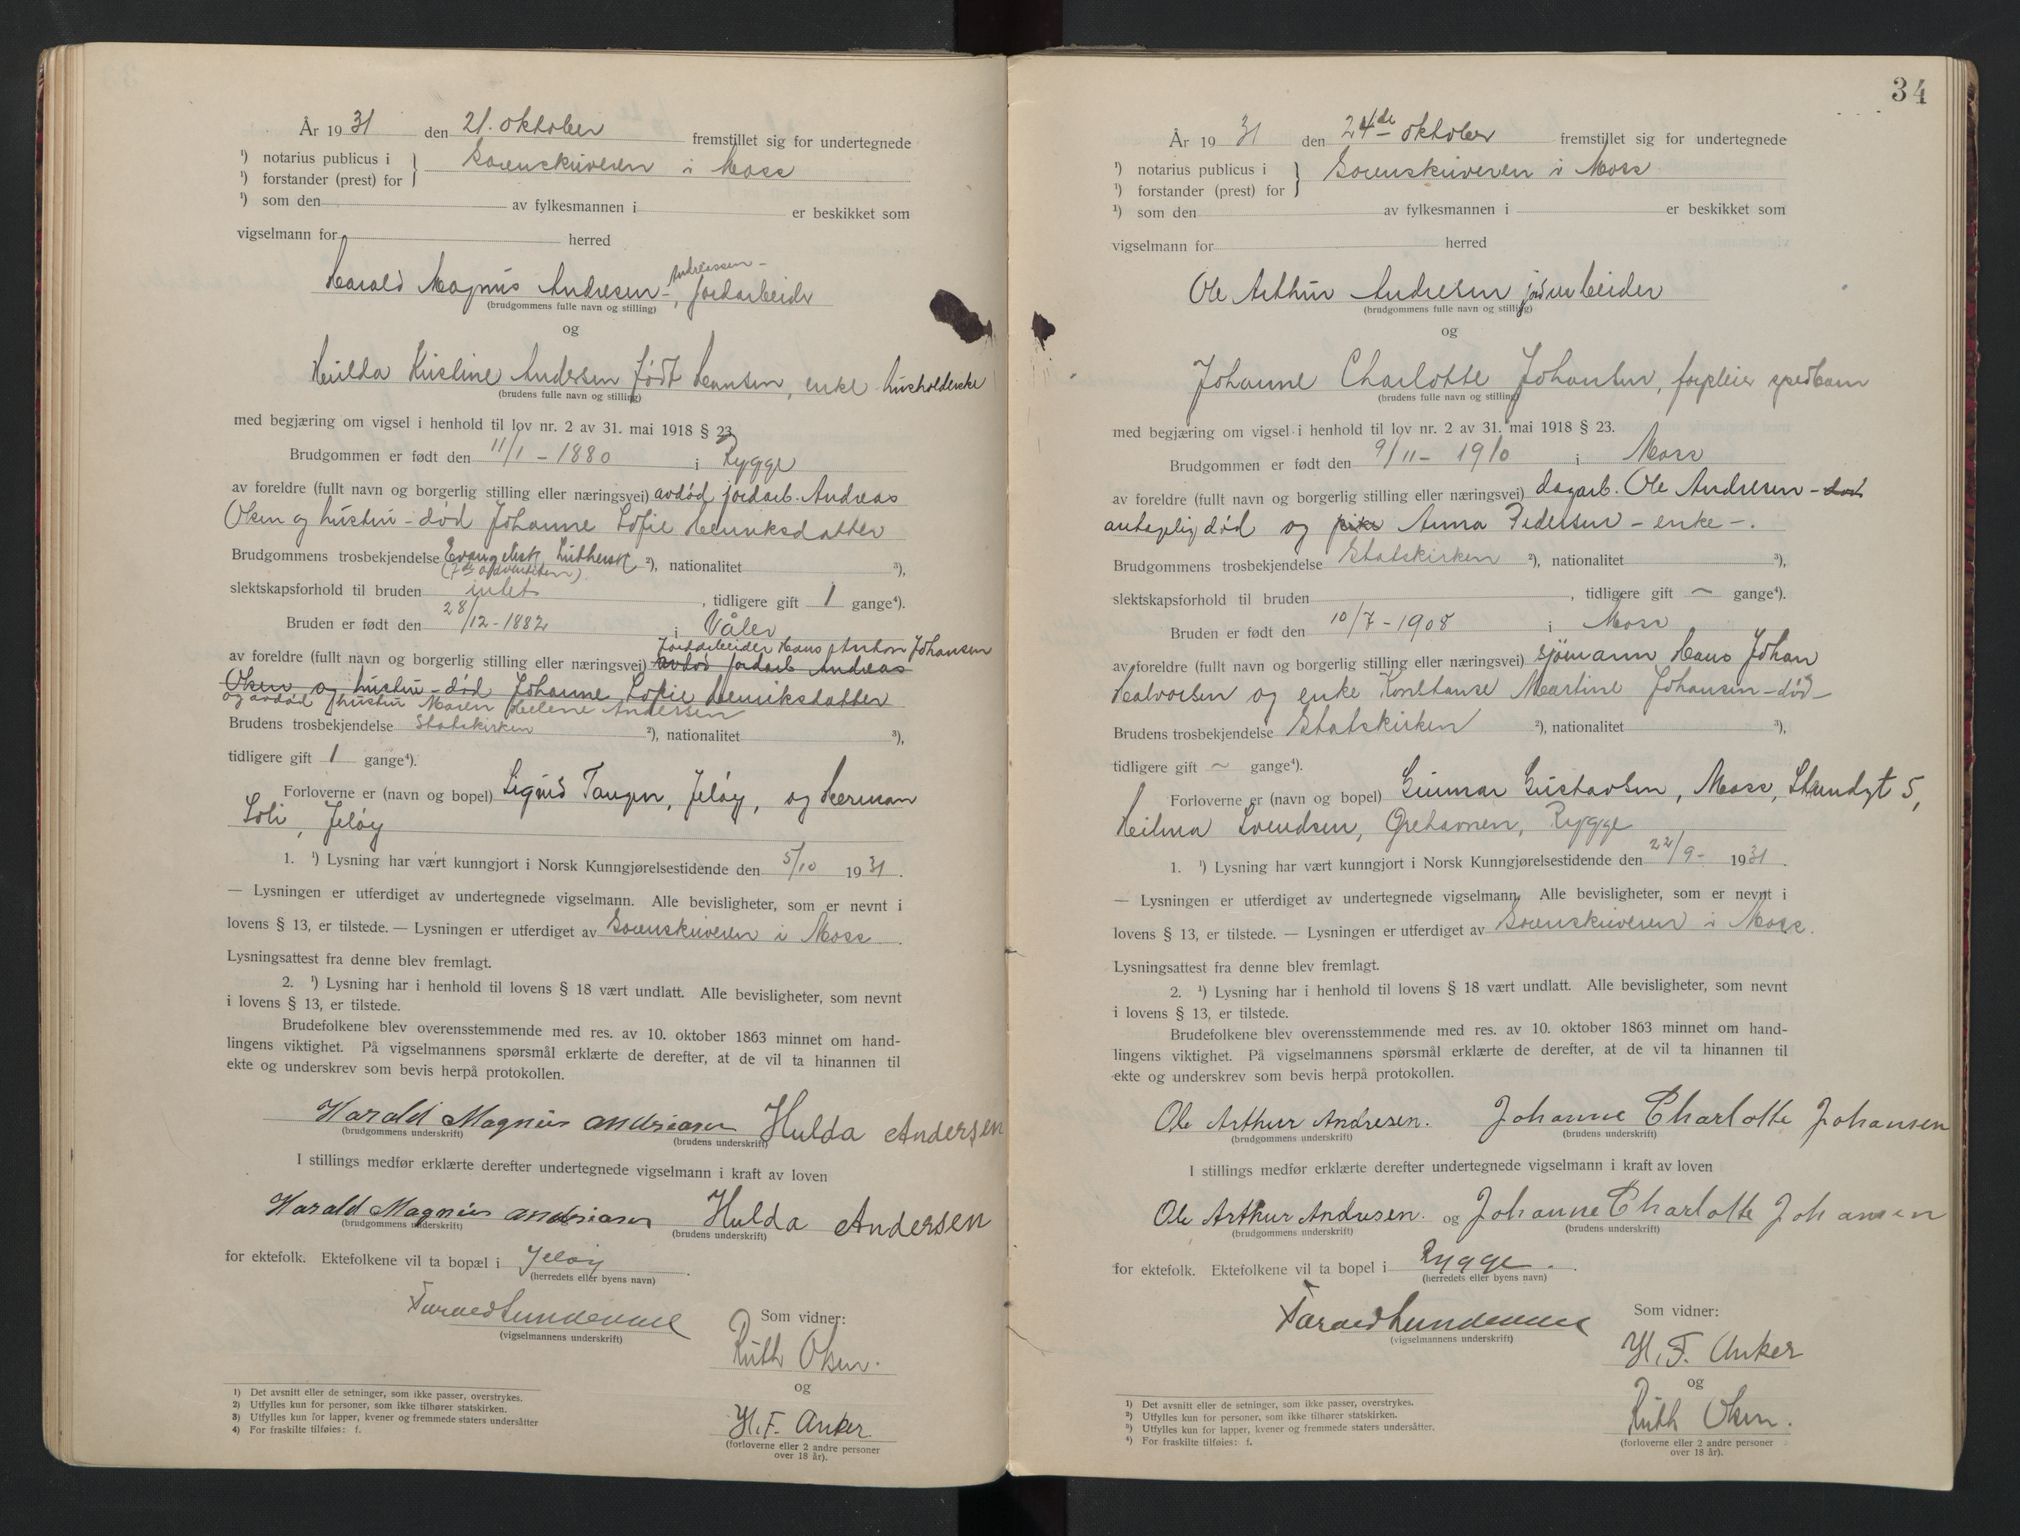 År 1931 den 21. oktober fremstillet sig for undertegnede
¹) notarius publicus i } Sorenskriveren i Moss
¹) forstander (prest) for
¹) som den av fylkesmannen i er beskikket som
vigselmann for herred
Andreassen
Harald Magnus Andresen, jordarbeider
(brudgommens fulle navn og stilling)
og
Hulda Kristine Andersen født Hansen, enke
(brudens fulle navn og stilling)
med begjæring om vigsel i henhold til lov nr. 2 av 31. mai 1918 § 23.
Brudgommen er født den 11/1 - 1880 i Rygge
av foreldre (fullt navn og borgerlig stilling eller næringsvei) avdød jordarb. Andreas
Olsen og hustru - død Johanne Sofie Henriksdatter
Brudgommens trosbekjendelse Evangelisk Luthersk ²), nationalitet ³),
(7de adventisten)
slektskapsforhold til bruden intet, tidligere gift 1 gange⁴).
Bruden er født den 28/12 - 1882 i Våler
Jordarbeider Hans Anton Johansen
av foreldre (fullt navn og borgerlig stilling eller næringsvei) avdød jordarb Andreas
Olsen og hustru - død Johanne Sofie Henriksdatter
og avdød hustru Maren Helene Andersen
Brudens trosbekjendelse Statskirken ²), nationalitet ³),
tidligere gift 1 gange⁴).
Forloverne er (navn og bopel) Sigurd Taugen, Jeløy, og Herman
Soli, Jeløy
1. ¹) Lysning har vært kunngjort i Norsk Kunngjørelsestidende den 5/10 1931.
— Lysningen er utferdiget av undertegnede vigselmann. Alle bevisligheter, som er nevnt i
lovens § 13, er tilstede. — Lysningen er utferdiget av Sorenskriveren i Moss.
Lysningsattest fra denne blev fremlagt.
2. ¹) Lysning har i henhold til lovens § 18 vært undlatt. Alle bevisligheter, som nevnt
i lovens § 13, er tilstede.
Brudefolkene blev overensstemmende med res. av 10. oktober 1863 minnet om hand-
lingens viktighet. På vigselmannens spørsmål erklærte de derefter, at de vil ta hinannen til
ekte og underskrev som bevis herpå protokollen.
Harald Magnus Andriasen Hulda Andersen
(brudgommens underskrift) (brudens underskrift)
I stillings medfør erklærte derefter undertegnede vigselmann i kraft av loven
Harald Magnus Andriasen Hulda Andersen
(brudgommens underskrift) (brudens underskrift)
for ektefolk. Ektefolkene vil ta bopæl i Jeløy.
(herredets eller byens navn)
(vigselmannens underskrift)
Som vidner:
Ruth Olsen.
og
H. F. Anker
(forloverne eller 2 andre personer
over 18 år).
1) Det avsnitt eller de setninger, som ikke passer, overstrykes.
2) Utfylles kun for personer, som ikke tilhører statskirken.
3) Utfylles kun for lapper, kvener og fremmede staters undersåtter
4) For fraskilte tilføies: f.
34
År 1931 den 24de oktober fremstillet sig for undertegnede
¹) notarius publicus i } Sorenskriveren i Moss
¹) forstander (prest) for
¹) som den av fylkesmannen i er beskikket som
vigselmann for herred
Ole Arthur Andresen jordarbeider
(brudgommens fulle navn og stilling)
og
Johanne Charlotte Johansen, forpleier spedbarn
(brudens fulle navn og stilling)
med begjæring om vigsel i henhold til lov nr. 2 av 31. mai 1918 § 23.
Brudgommen er født den 9/11 - 1910 i Moss
av foreldre (fullt navn og borgerlig stilling eller næringsvei) dagarb. Ole Andresen - død
antagelig død og pike Anna Pedersen - enke -.
Brudgommens trosbekjendelse Statskirken ²), nationalitet ³),
slektskapsforhold til bruden, tidligere gift ~ gange⁴).
Bruden er født den 10/7 - 1908 i Moss
av foreldre (fullt navn og borgerlig stilling eller næringsvei) sjömann Hans Johan
Halvorsen og enke Konstanse Martine Johansen - död -
Brudens trosbekjendelse Statskirken ²), nationalitet ³),
tidligere gift ~ gange⁴).
Forloverne er (navn og bopel) Gunnar Gustavsen, Moss, Strandgt 5,
Hilma Svendsen, Grehavnen, Rygge
1. ¹) Lysning har vært kunngjort i Norsk Kunngjørelsestidende den 22/9 - 1931.
— Lysningen er utferdiget av undertegnede vigselmann. Alle bevisligheter, som er nevnt i
lovens § 13, er tilstede. — Lysningen er utferdiget av Sorenskriveren i Moss.
Lysningsattest fra denne blev fremlagt.
2. ¹) Lysning har i henhold til lovens § 18 vært undlatt. Alle bevisligheter, som nevnt
i lovens § 13, er tilstede.
Brudefolkene blev overensstemmende med res. av 10. oktober 1863 minnet om hand-
lingens viktighet. På vigselmannens spørsmål erklærte de derefter, at de vil ta hinannen til
ekte og underskrev som bevis herpå protokollen.
Ole Arthur Andresen. Johanne Charlotte Johansen
(brudgommens underskrift) (brudens underskrift)
I stillings medfør erklærte derefter undertegnede vigselmann i kraft av loven
Ole Arthur Andresen. og Johanne Charlotte Johansen
(brudgommens underskrift) (brudens underskrift)
for ektefolk. Ektefolkene vil ta bopel i Rygge.
(herredets eller byens navn)
(vigselmannens underskrift)
Som vidner:
H. F. Anker
og
Ruth Olsen.
(forloverne eller 2 andre personer
over 18 år).
¹) Det avsnitt eller de setninger, som ikke passer, overstrykes.
²) Utfylles kun for personer, som ikke tilhører statskirken.
³) Utfylles kun for lapper, kvener og fremmede staters undersåtter.
⁴) For fraskilte tilføies: f.